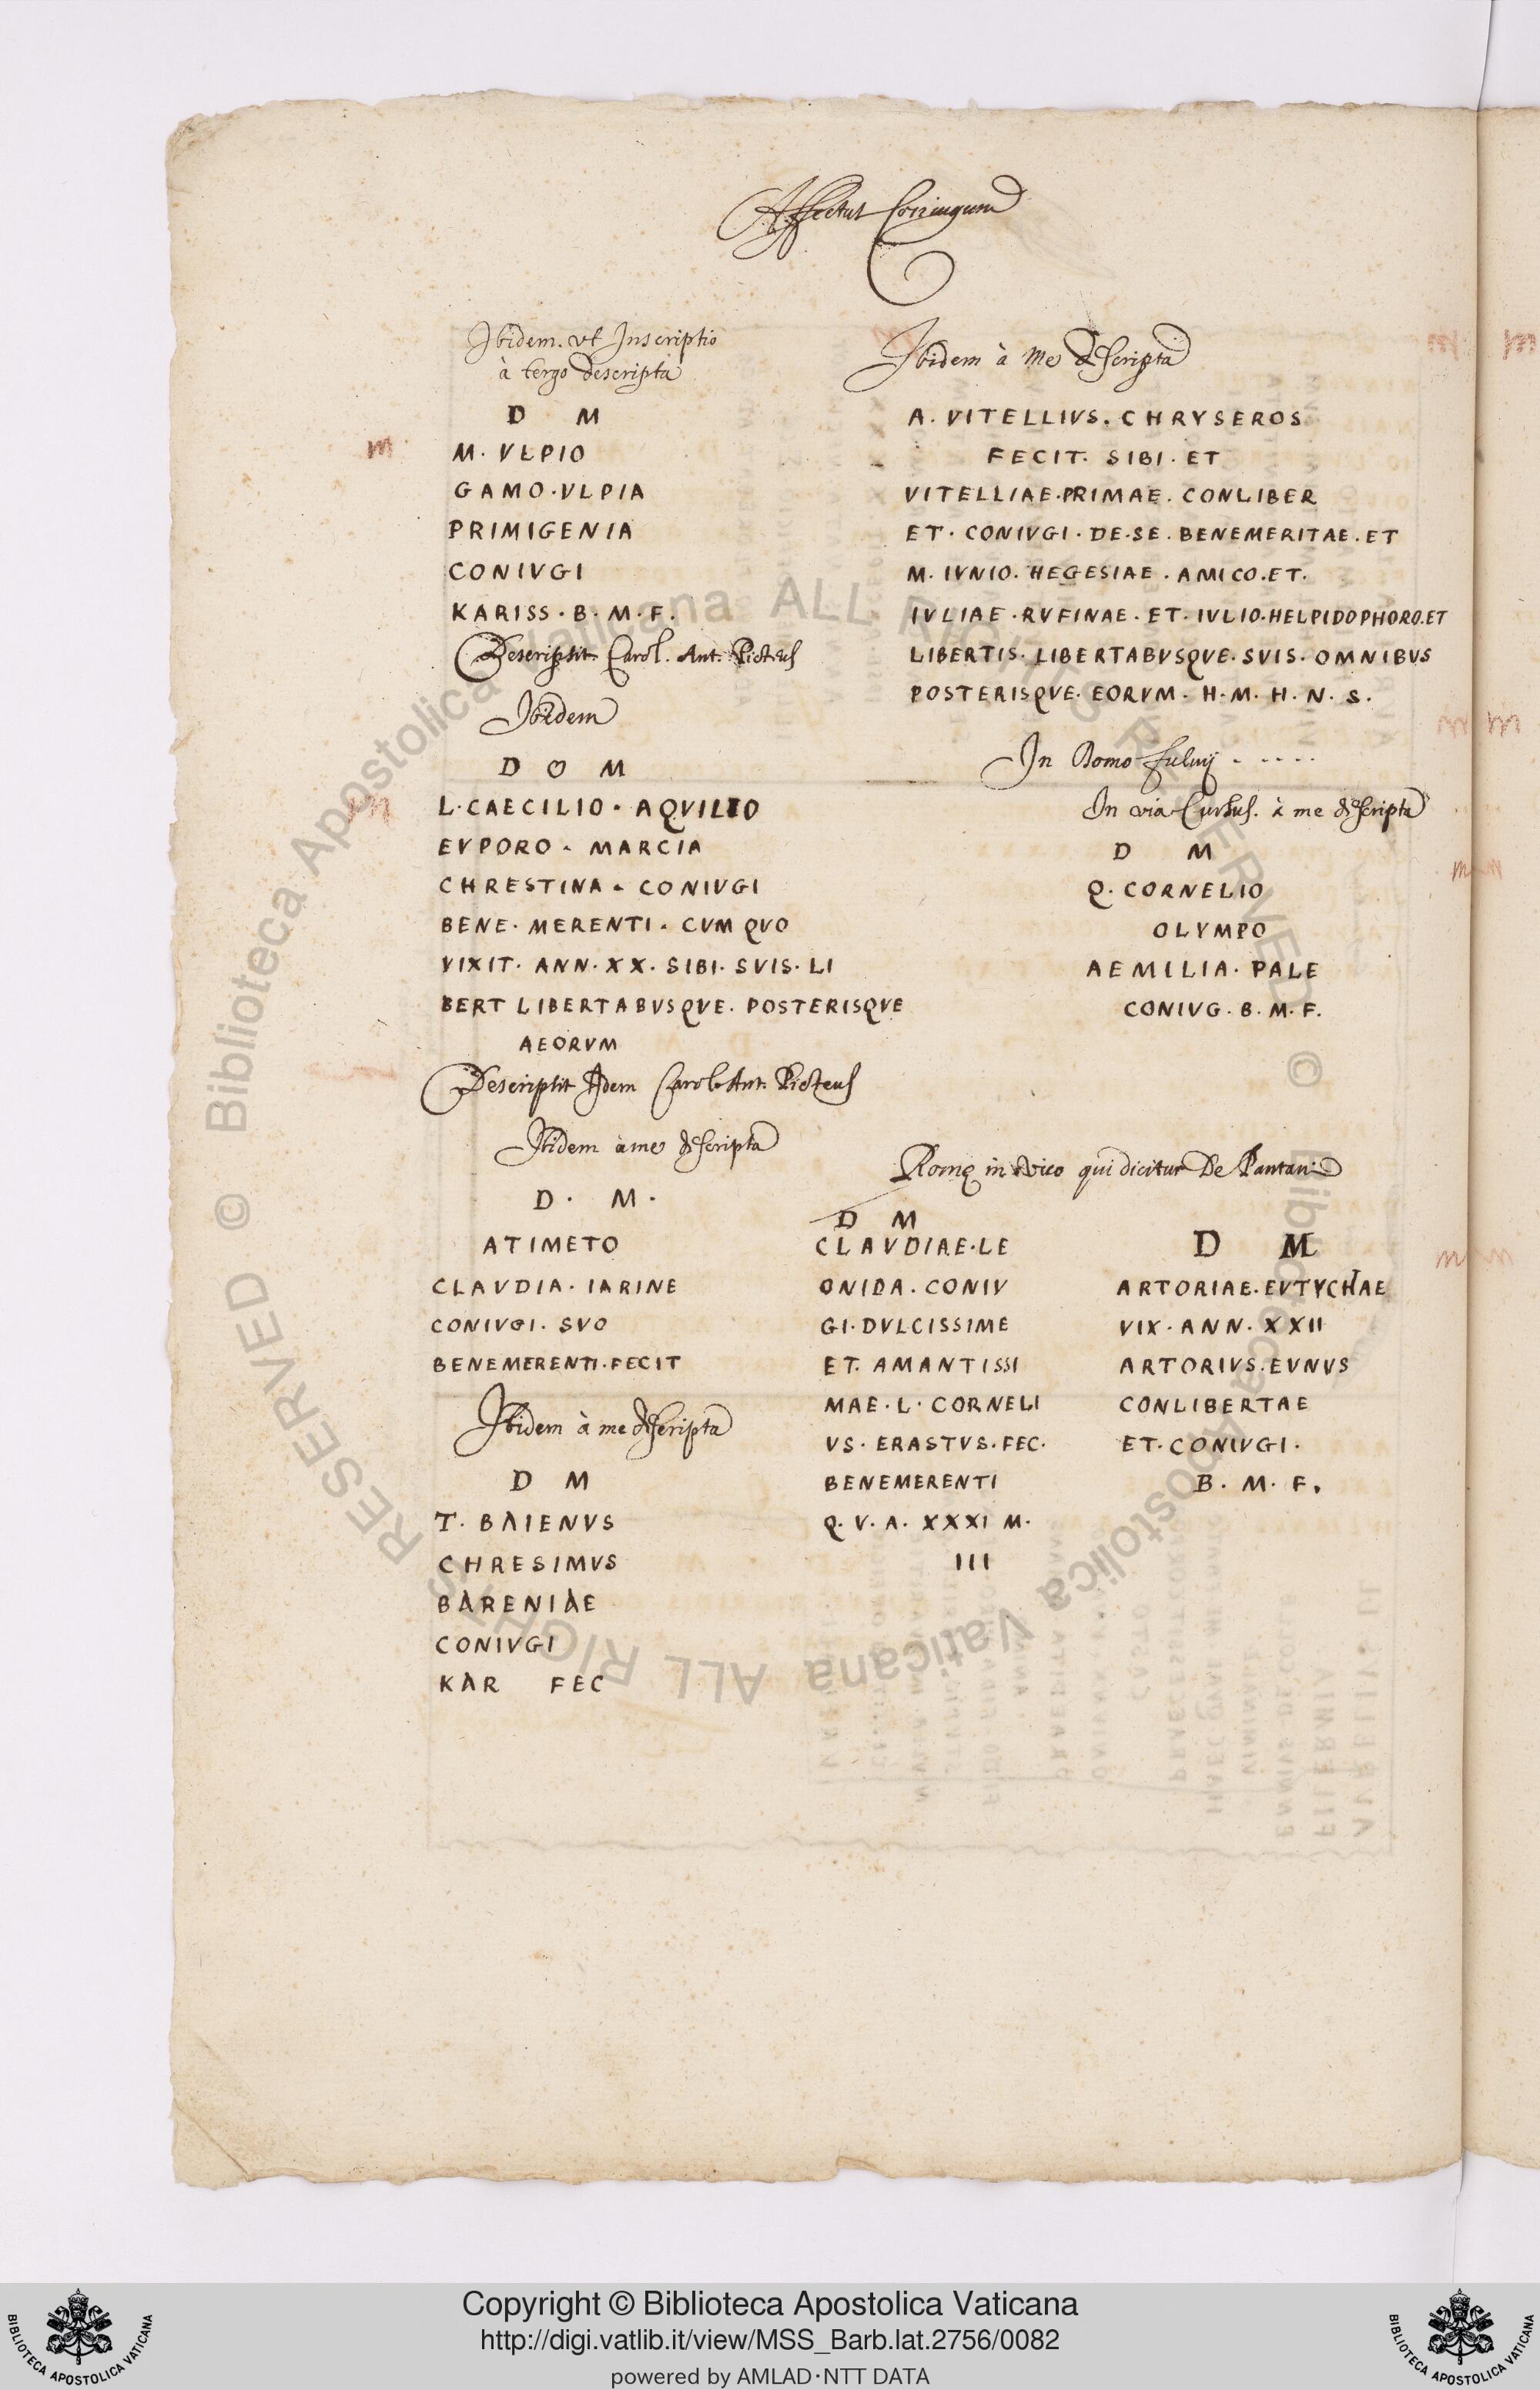 Affectus Coniugum
Ibidem. ut Inscriptio
à tergo descripta
D M
M. VLPIO
GAMO·VLPIA
PRIMIGENIA
CONIVGI
KARISS·B·M·F.
Descripsit. Carol. Ant. Picteus
Ibidem
D O M
L·CAECILIO·AQVILIO
EVPORO·MARCIA
CHRESTINA·CONIVGI
BENE·MERENTI·CVM QVO
VIXIT·ANN·XX·SIBI·SVIS·LI
BERT LIBERTABVSQVE·POSTERISQVE
AEORVM
Descripsit Idem Carol. Ant. Picteus
Ibidem à me descripta
D· M·
ATIMETO
CLAVDIA·IARINE
CONIVGI·SVO
BENEMERENTI·FECIT
Ibidem à me descripta
D M
T·BAIENVS
CHRESIMVS
BARENIAE
CONIVGI
KAR FEC
Ibidem à me descripta
A. VITELLIVS. CHRYSEROS
FECIT. SIBI. ET
VITELLIAE·PRIMAE. CONLIBER
ET·CONIVGI·DE·SE. BENEMERITAE. ET
M. IVNIO. HEGESIAE. AMICO. ET.
IVLIAE·RVFINAE·ET·IVLIO·HELPIDOPHORO.ET
LIBERTIS. LIBERTABVSQVE. SVIS. OMNIBVS
POSTERISQVE. EORVM. H. M. H. N. S.
In Domo fuluij . . . . .
In via Cursus. à me descripta
D M
Q. CORNELIO
OLYMPO
AEMILIA. PALE
CONIVG. B. M. F.
Romę in vico qui dicitur De Pantani
D M
CLAVDIAE·LE
ONIDA. CONIV
GI·DVLCISSIME
ET. AMANTISSI
MAE·L·CORNELI
VS·ERASTVS·FEC·
BENEMERENTI
Q. V. A. XXXI M.
III
D M
ARTORIAE·EVTYCHIAE
VIX·ANN·XXII
ARTORIVS·EVNVS
CONLIBERTAE
ET·CONIVGI·
B. M. F.
m
m
Biblioteca Apostolica Vaticana ALL RIGHTS RESERVED ©
Biblioteca Apostolica Vaticana ALL RIGHTS RESERVED ©
BIBLIOTECA APOSTOLICA VATICANA
Copyright © Biblioteca Apostolica Vaticana
http://digi.vatlib.it/view/MSS_Barb.lat.2756/0082
powered by AMLAD·NTT DATA
BIBLIOTECA APOSTOLICA VATICANA